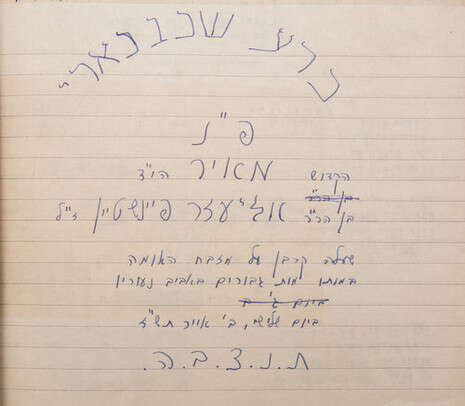 כרע שכב כארי
פ"נ
הקדוש מאיר הי"ד
בן הר"ר
בן הר"ר אליעזר פיינשטיין ז"ל
שעלה קרבן על מזבח האומה
במותו מות גבורים באביב נעוריו
ביום ג' ב
ביום שלישי, ב' אייר תש"ז
ת.נ.צ.ב.ה.